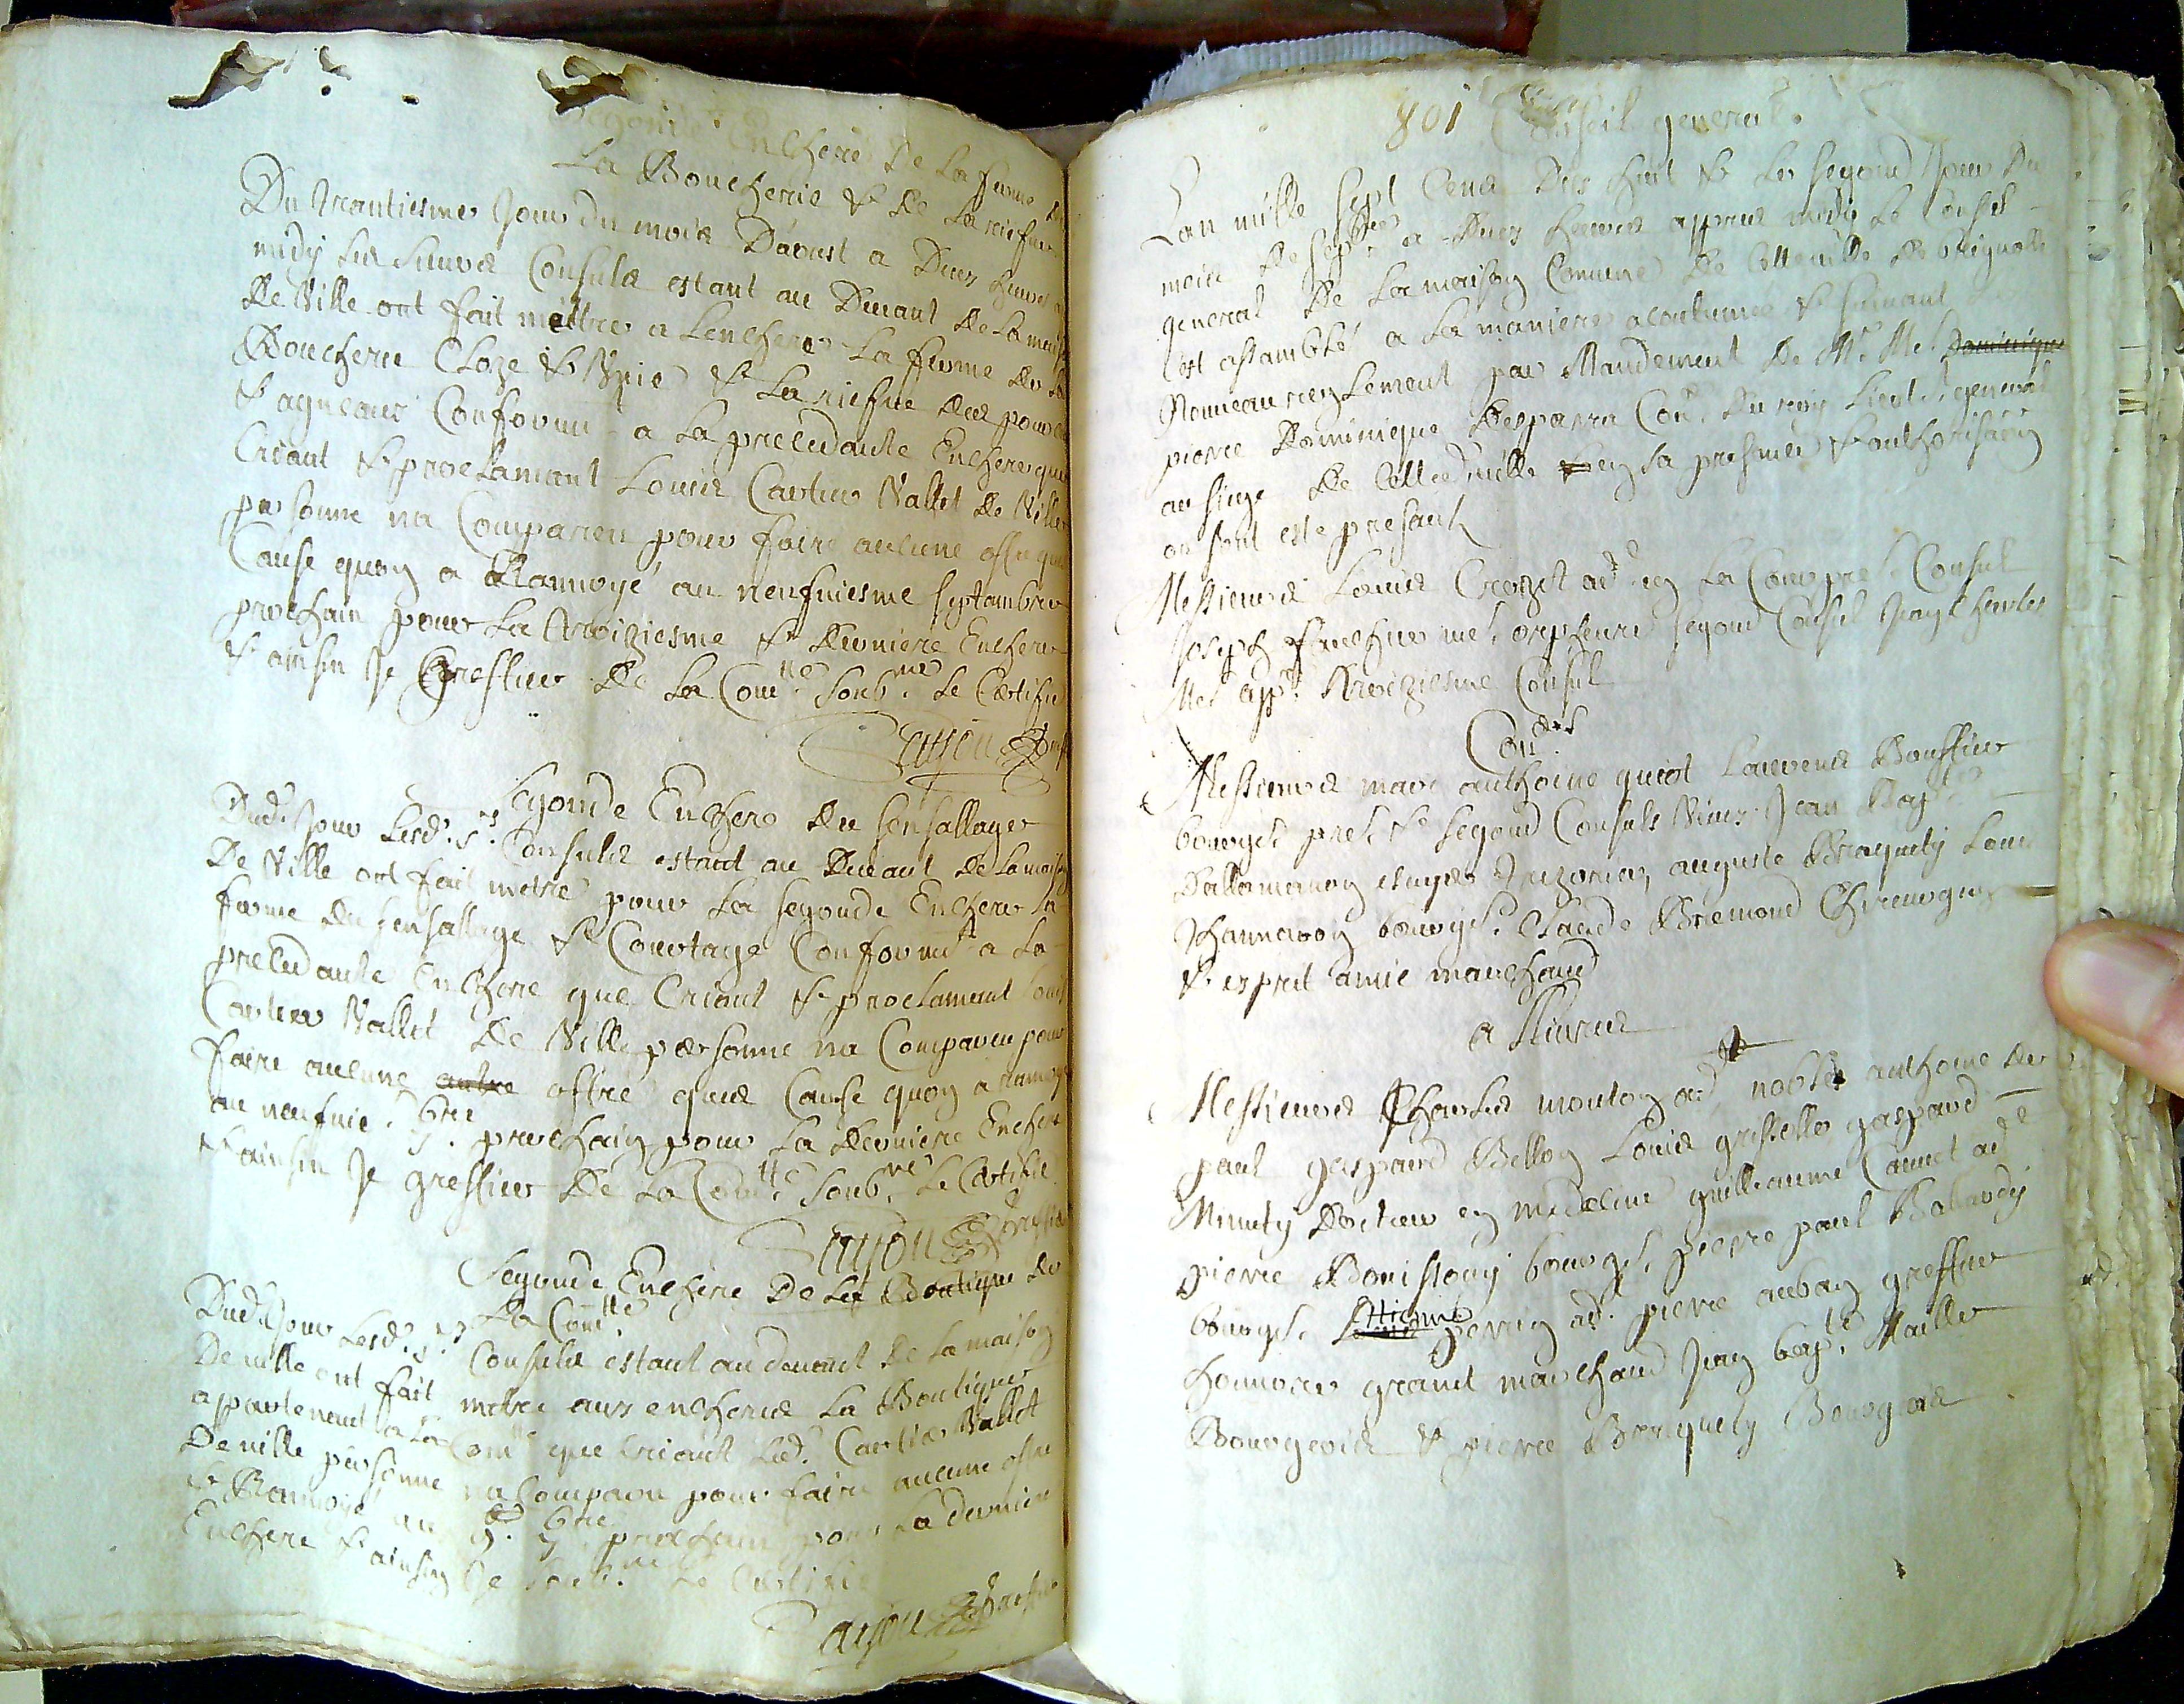 Segonde Enchere De La ferme de
La Boucherie & de La riefve
Du trantiesme Jour du mois D'aoust a Dues heures
midy Les sieurs Consuls estant au Devant De La mais
De Ville ont fait mettre a Lenchere La ferme de La
Boucherie Cloze & & La riefve des
& agneaus Conformt a La precedante Enchere que
Criant & proclamant Louis Cartier Vallet De Ville
personne na Compareu pour faire aulcune offre
Cause quoy a Ranvoyé au neufviesme septambre
prochain pour La troiziesme & Derniere Enchere
& ainsin Je Greffier De La Comtte soubne Le Certifie
greff
Segonde Enchere Du sensallage
Dud. Jour Lesd. srs Consuls estant au Devant De La maison
De Ville ont fait metre pour La segonde Enchere La
ferme du sensallage & Courtage Conformt a La
precedante Enchere que Criant & proclamant Louis
Cartier Vallet De Ville personne na Compareu pour
faire aulcune autre offre Cause quoy a ranvoyé
au neufvie. 7bre prochain pour La Derniere Enchere
& ainsin Je greffier De La Comtte soubne Le Certifie
greffier
Segonde Enchere De La Boutique de
La Comtte
Dud. Jour Lesd. srs Consuls estant au devant De La maison
De ville ont fait metre aux encheres La Boutique
appartenant a La Comtte que Criant Led. Cartier Vallet
De ville personne na Compareu pour faire aucune offre
& Ranvoyé au 9. 7bre prochain pour La derniere
Enchere & ainsin Je soub.ne Le Certifie
greffier
801 Conseil general.
Lan mille sept Cens Dix huit & Le segond Jour Du
mois De septbre a Dues heures appres midy Le Conseil
general De La maison Comune De Cette ville De brignolle
cest assamblé a La maniere acoutumee & suivant
Nouveau reglement par Mandement De Mr Me Dominique
pierre Dominique Desparra Conr. Du roy Lieut. general
au siege De Cette ville en sa presance & authorisation
ou sont este presants
Messieurs Louis Crozet adt en La Cour pres. Consul
Joseph me. orpheure segond Consul Jean Charles
app.re troiziesme Consul
Coners
Messieurs marc anthoine guiot Laurens Bouffier
bourgs. pre. & segond Consuls Vieux Jean Bapt.
Dallamanon escuyer Trezorier, auguste Braquety Louis
bourgs. Claude Bremond Chirurgien
& esprit amic marchand
a
Messieurs Charles mouton adt nobles anthoine de
paul gaspard Bellon Louis grisolle gaspard
Minuty Docteur en medeline guilleaume Cannet adt
pierre bourgs. pierre paul
bourgs. Louis Ettienne perrin adt. pierre auban greffier
honnore granet marchand Jean bapte. Maille
Bourgeois & pierre Braquety Bourgois